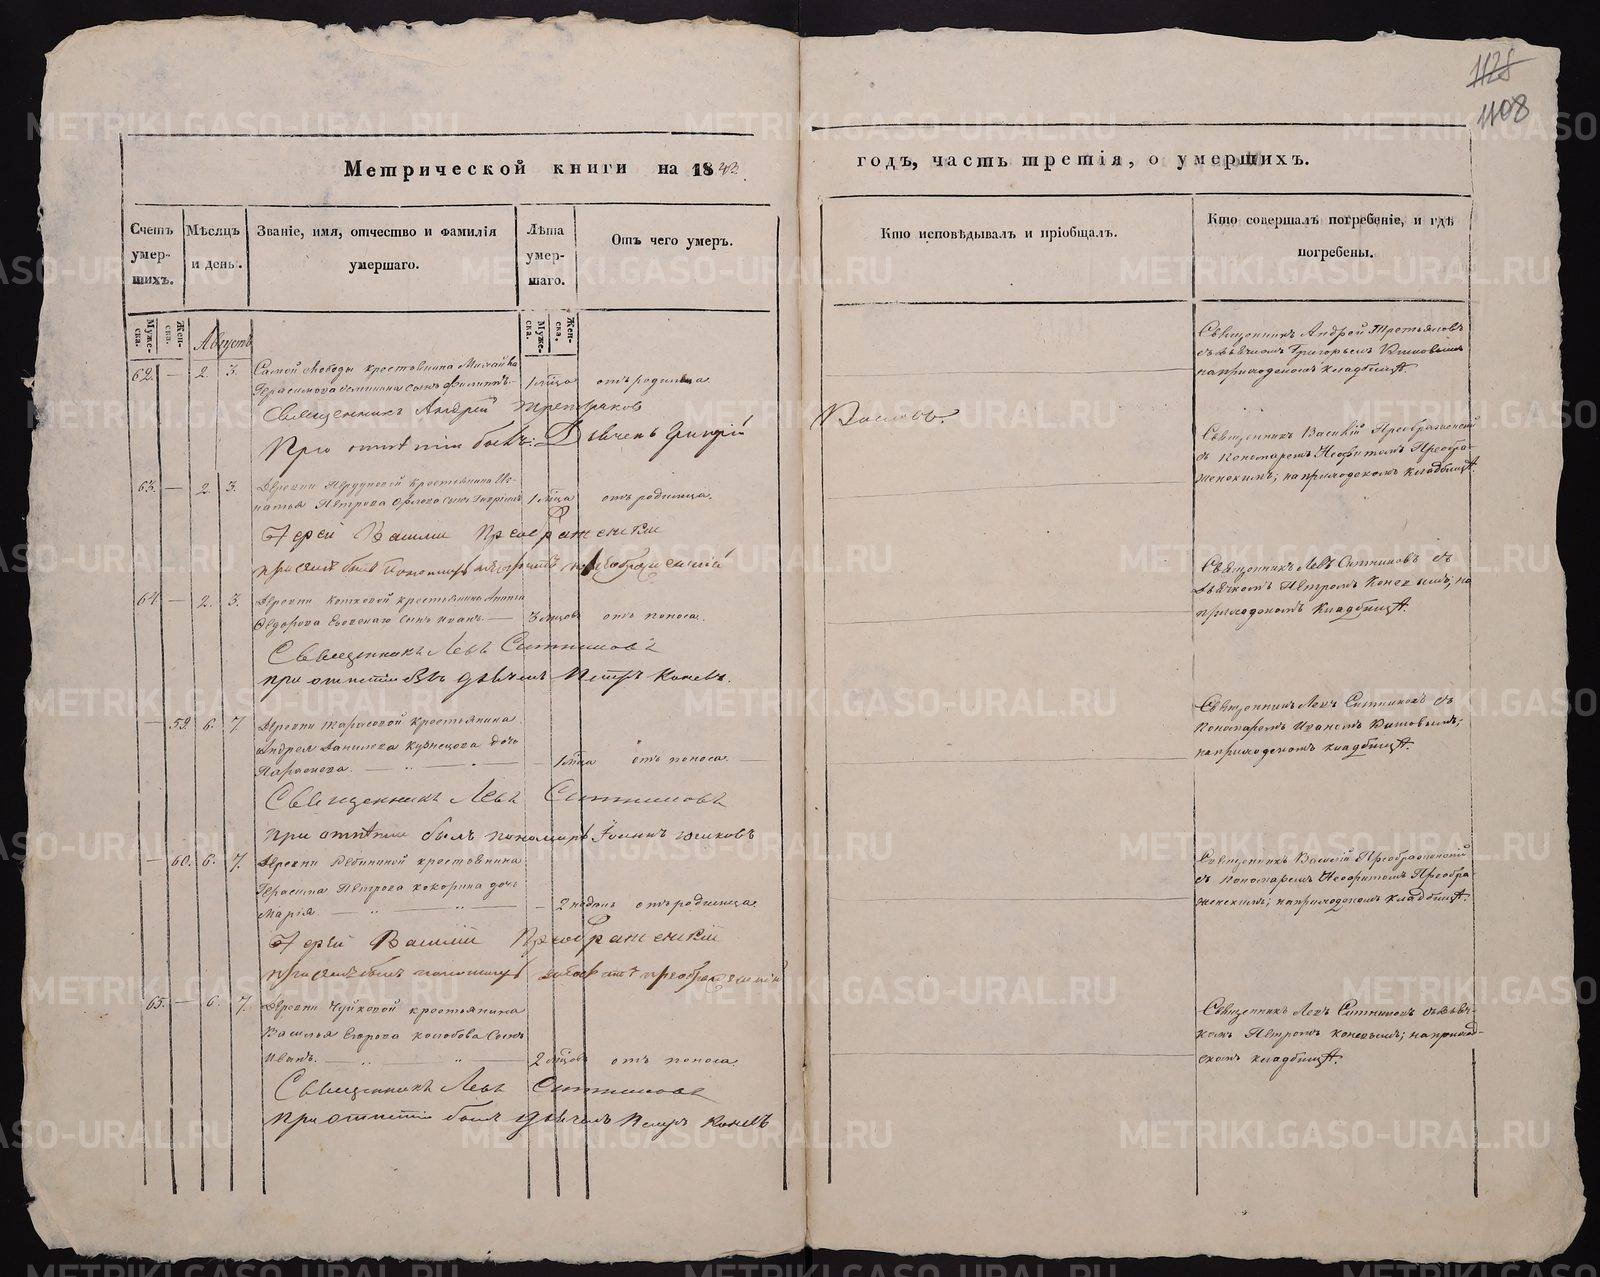 1128
1108
Метрической книги на 1843.
годъ, часть третія, о умершихъ.
Счетъ умер-шихъ.
Мѣсяцъ и день.
Званіе, имя, отчество и фамилія умершаго.
Лѣта умер-шаго.
Отъ чего умер.
Кто исповѣдывалъ и пріобщалъ.
Кто совершалъ погребеніе, и гдѣ погребены.
Муже-ска.
Жен-ска.
Августъ
Муже-ска.
Жен-ска.
62. — 2. 3. Самой слободы крестьянина Михайла
Герасимова сынъ Филиппъ — 1 мѣсца отъ родимца.
Священникъ Андрей Третьяковъ
При отпѣтіи былъ: Дьячекъ Григорій
Поповъ.
Священникъ Андрей Третьяковъ
съ дьячкомъ Григорьемъ
на приходскомъ кладбищѣ.
63. — 2. 3. Деревни крестьянина Иг-
натья Петрова Орлова сынъ Гавріилъ 1 мѣсца отъ родимца.
Іерей Василий Преображенский
при семъ былъ пономарь Неофитъ Преображенскій
Священникъ Василій Преображенскій
съ пономаремъ Неофитомъ Преобра-
женскимъ; на приходскомъ кладбищѣ.
64. — 2. 3. Деревни крестьянина
Ѳедорова сынъ Иванъ. — 3 мѣсцовъ отъ поноса.
Священникъ Левъ Ситниковъ
при отпѣтіи былъ дьячекъ Петръ Коневъ.
Священникъ Левъ Ситниковъ съ
дьячкомъ Петромъ Коневымъ; на
приходскомъ кладбищѣ.
— 59. 6. 7. Деревни Тарасовой крестьянина
Андрея Данилова Кузнецова дочь
Параскева. — 1 мѣсца отъ поноса. —
Священникъ Левъ Ситниковъ
При отпѣтіи былъ пономарь Іоаннъ
Священникъ Левъ Ситниковъ съ
пономаремъ Иваномъ
на приходскомъ кладбищѣ.
— 60. 6. 7. Деревни крестьянина
Герасима Петрова Кокорина дочь
Марія. — 2 недѣль отъ родимца.
Іерей Василий Преображенскій
при семъ былъ пономарь Неофитъ Преображенский
Священникъ Василій Преображенскій
съ пономаремъ Неофитомъ Преобра-
женскимъ; на приходскомъ кладбищѣ.
65. — 6. 7. Деревни Чуйковой крестьянина
Василья Егорова Колобова сынъ
Иванъ. — 2 мѣсцовъ отъ поноса.
Священникъ Левъ Ситниковъ
При отпѣтіи былъ дьячекъ Петръ Коневъ
Священникъ Левъ Ситниковъ съ дьяч-
комъ Петромъ Коневымъ; на приход-
скомъ кладбищѣ.
METRIKI.GASO-URAL.RU